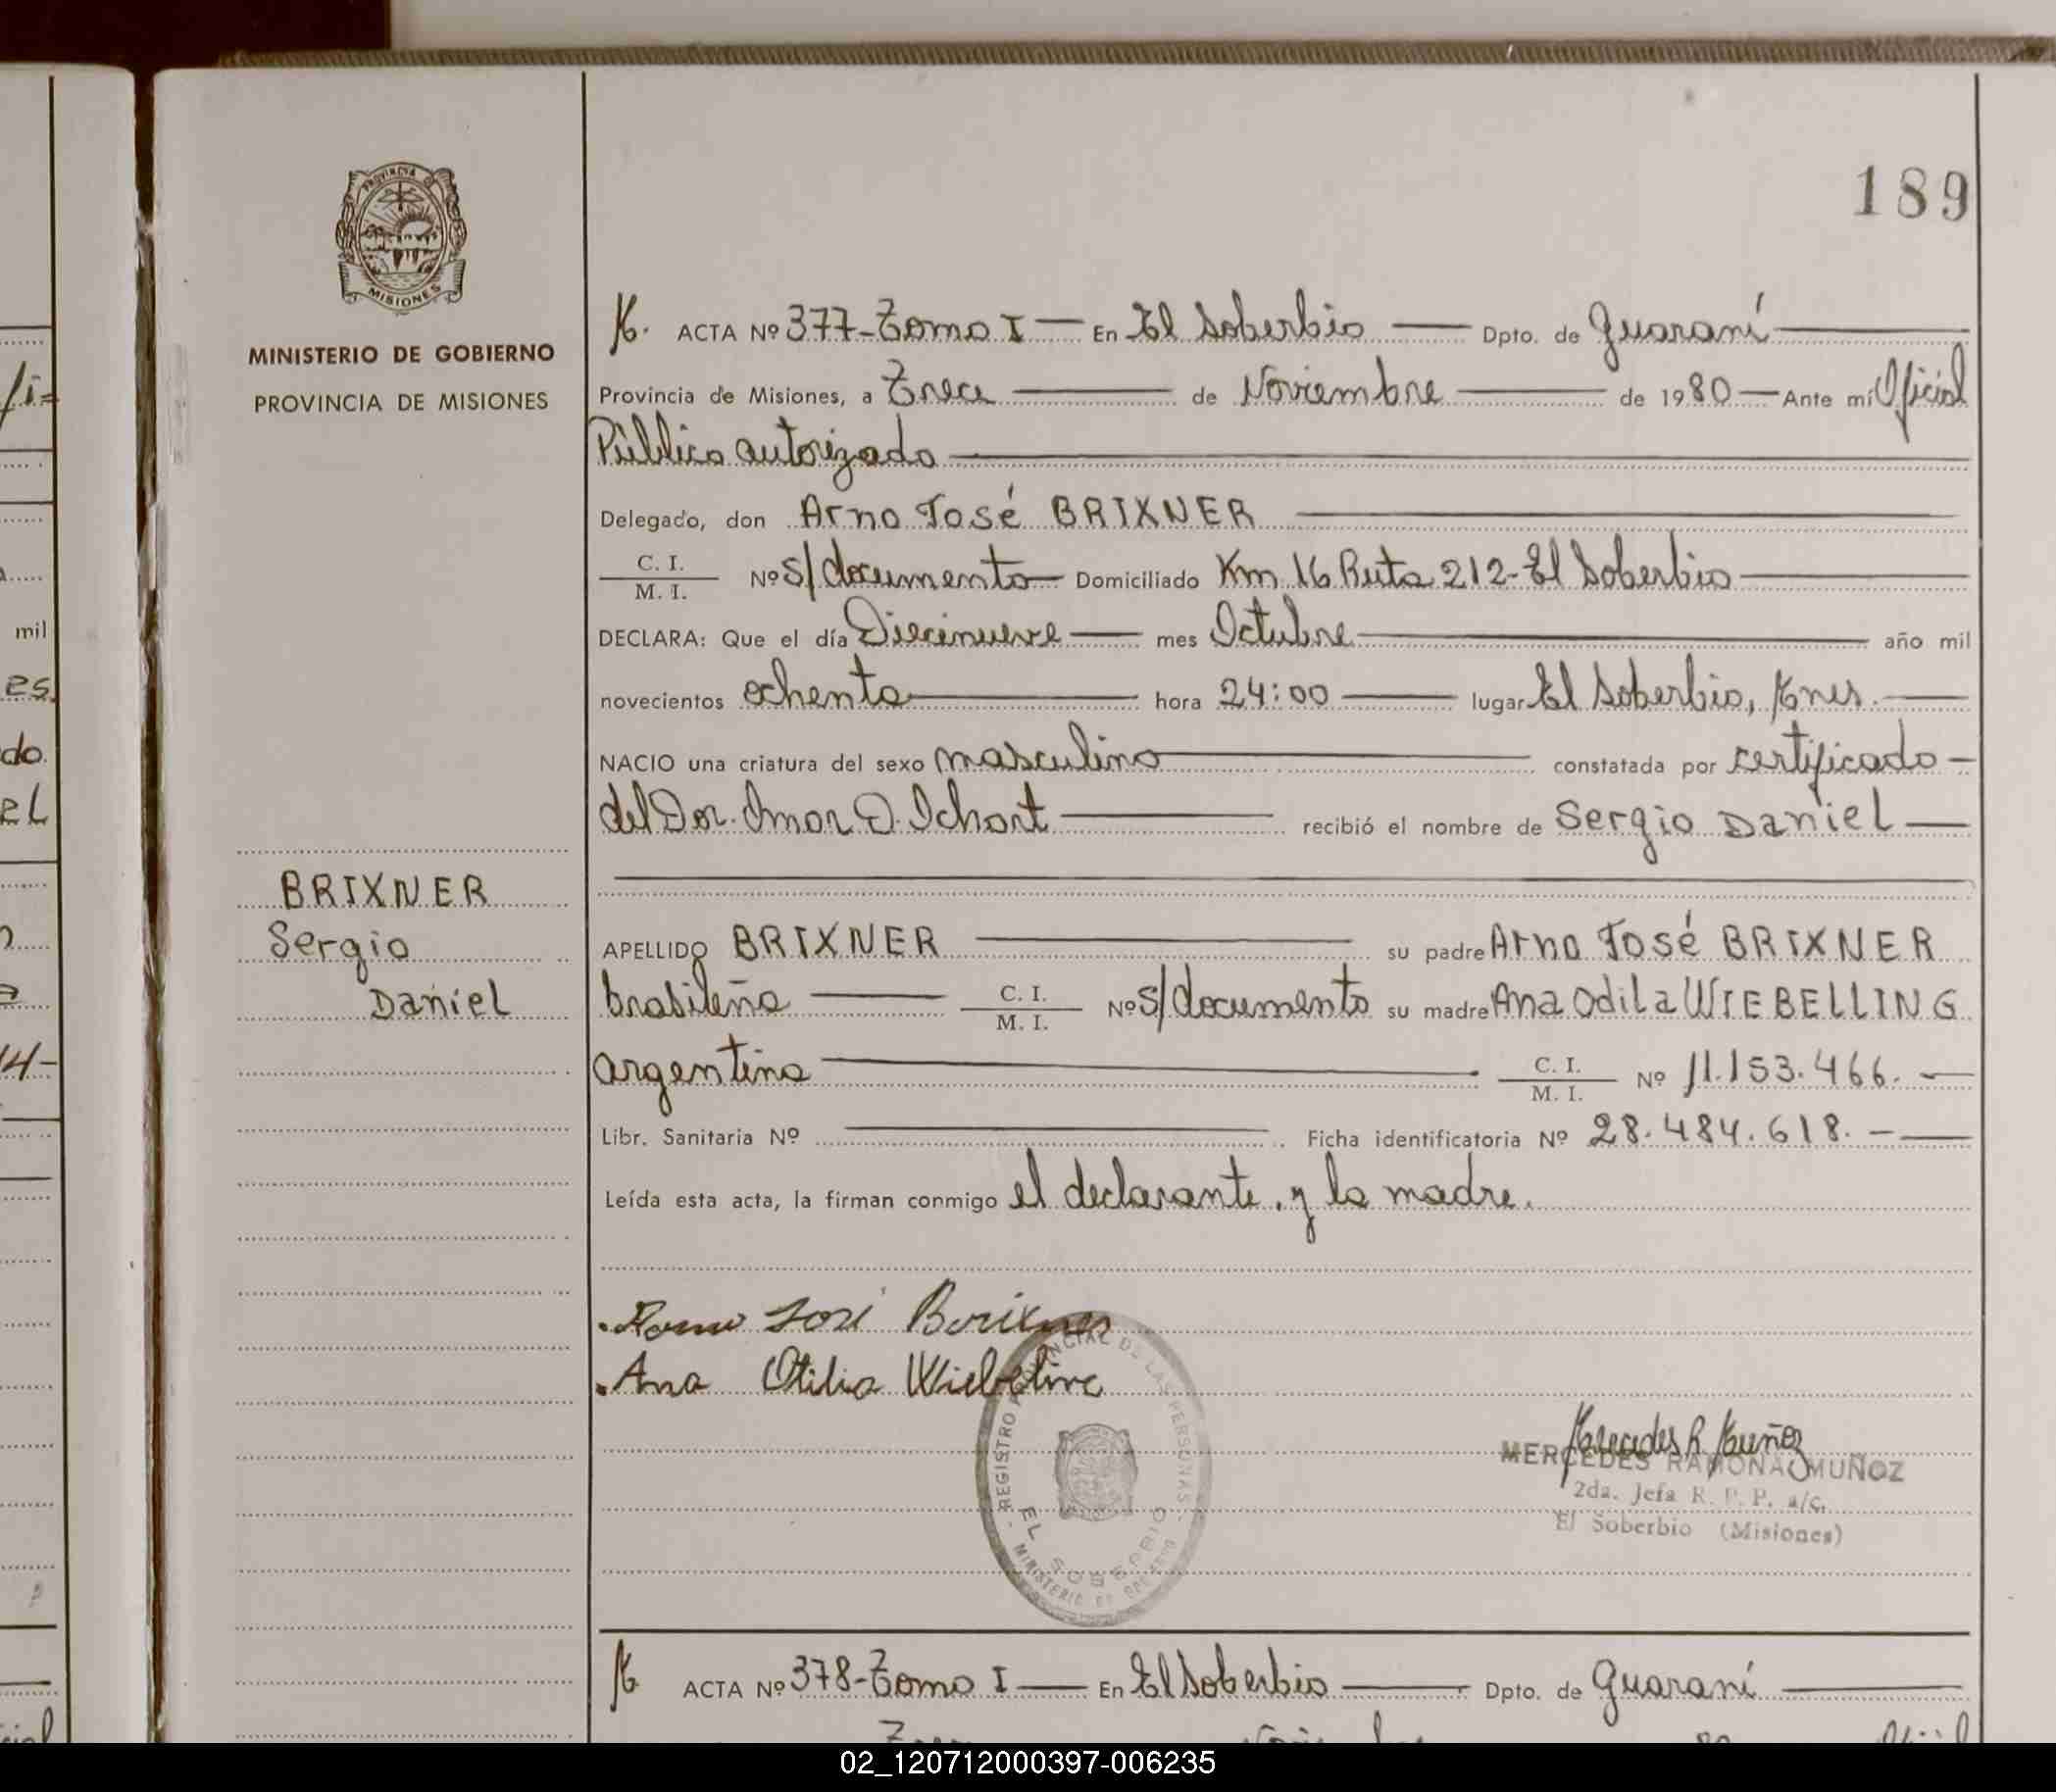 189
PROVINCIA D
MISIONES
MINISTERIO DE GOBIERNO
PROVINCIA DE MISIONES
ACTA Nº 377-Tomo I — En El Soberbio — Dpto. de Guaraní
Provincia de Misiones, a Trece — de Noviembre — de 1980 — Ante mi Oficial
Público autorizado
Delegado, don Arno José BRIXNER
C. I. / M. I. Nº s/documento — Domiciliado Km 16 Ruta 212-El Soberbio
DECLARA: Que el día Diecinueve — mes Octubre — año mil
novecientos ochenta — hora 24:00 — lugar El Soberbio, Mnes.
NACIO una criatura del sexo masculino — constatada por certificado —
del Dor. Omar D. Ichart — recibió el nombre de Sergio Daniel —
BRIXNER
Sergio
Daniel
APELLIDO BRIXNER — su padre Arno José BRIXNER
brasileña — C. I. / M. I. Nº s/documento su madre Ana Odila WIEBELLING
argentina — C. I. / M. I. Nº 11.153.466. —
Libr. Sanitaria Nº — Ficha identificatoria Nº 28.484.618. —
Leída esta acta, la firman conmigo el declarante, y la madre.
José Brixner
Ana Otilia Wiebeline
REGISTRO PROVINCIAL DE LAS PERSONAS
EL SOBERBIO
MINISTERIO DE GOBIERNO
Mercedes R Muñoz
MERCEDES RAMONA MUÑOZ
2da. Jefa R. P. P. a/c.
El Soberbio (Misiones)
ACTA Nº 378-Tomo I — En El Soberbio — Dpto. de Guaraní
mil
es
do
el
4-
02_120712000397-006235